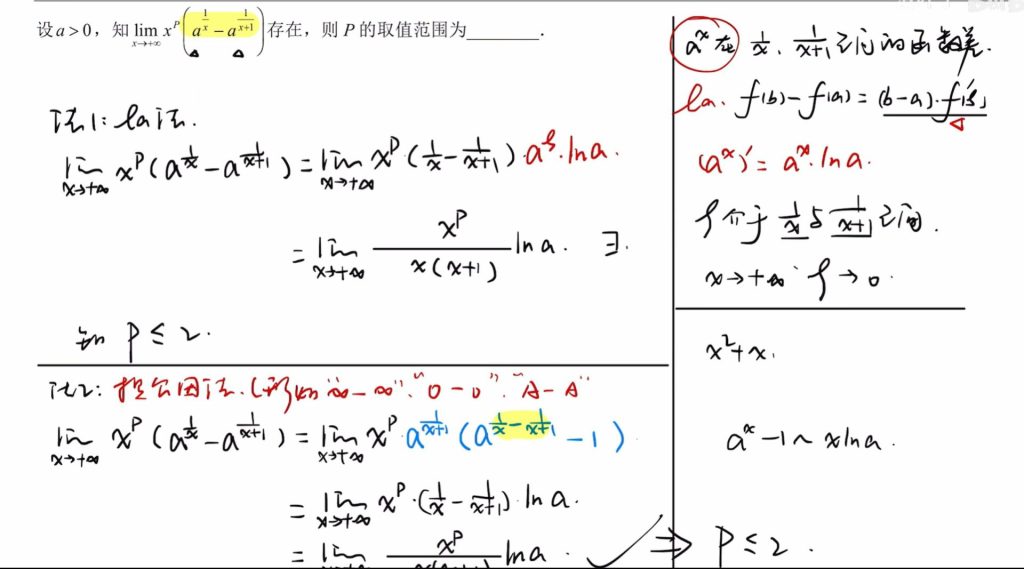 设 a > 0，知 lim_{x→+∞} x^P (a^{1/x} − a^{1/(x+1)}) 存在，则 P 的取值范围为________.
法1: la 法.
lim_{x→+∞} x^P (a^{1/x} − a^{1/(x+1)}) = lim_{x→+∞} x^P · (1/x − 1/(x+1)) a^ξ · ln a.
= lim_{x→+∞} x^P / (x(x+1)) ln a. ∃.
知 P ≤ 2.
法2: 提公因法. (形如 "∞ − ∞" "0 − 0" "A − A"
lim_{x→+∞} x^P (a^{1/x} − a^{1/(x+1)}) = lim_{x→+∞} x^P · a^{1/(x+1)} (a^{1/x − 1/(x+1)} − 1)
= lim_{x→+∞} x^P · (1/x − 1/(x+1)) · ln a.
= lim_{x→+∞} x^P / (x(x+1)) ln a. ✓ ⇒ P ≤ 2.
a^x 在 1/x、1/(x+1) 之间的函数差.
la. f(b) − f(a) = (b−a)·f'(ξ)
(a^x)' = a^x · ln a.
ξ介于 1/x 与 1/(x+1) 之间.
x→+∞ ξ→0.
x² + x.
a^x − 1 ~ x ln a.